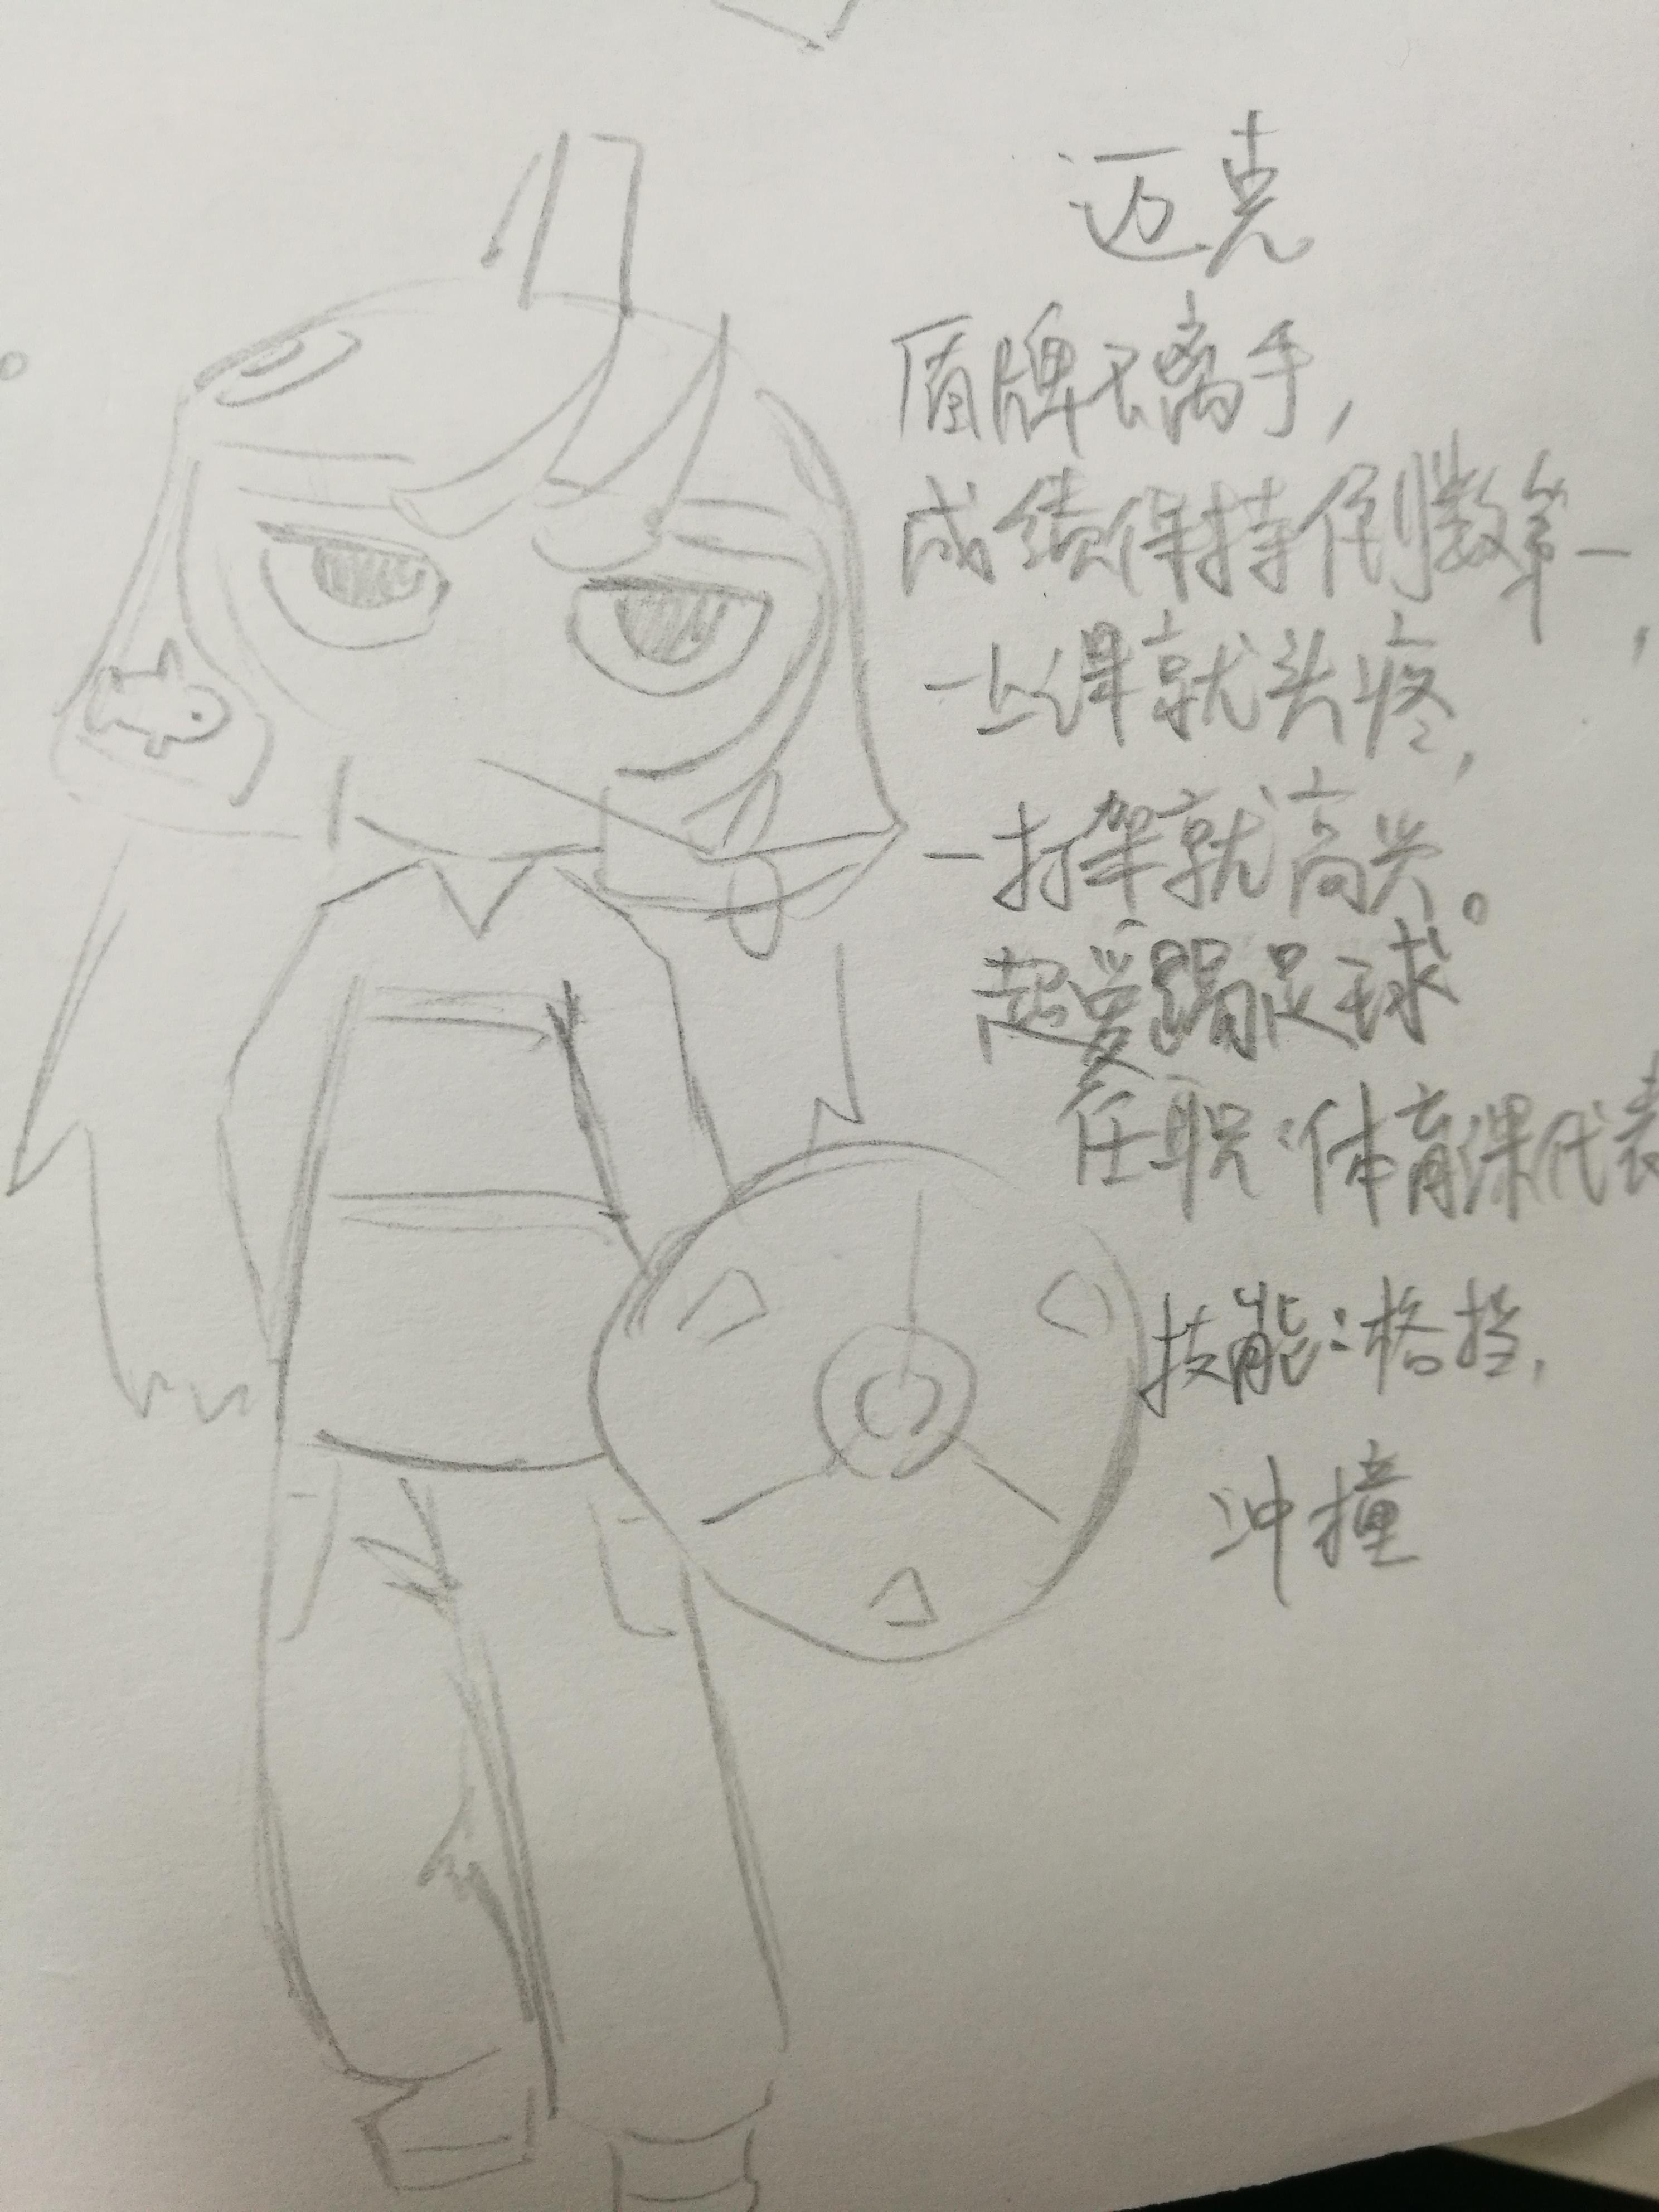 迈克
盾牌不离手,
成绩保持倒数第一,
一上课就头疼,
一打架就高兴。
超爱踢足球
任职:体育课代表
技能:格挡,
冲撞